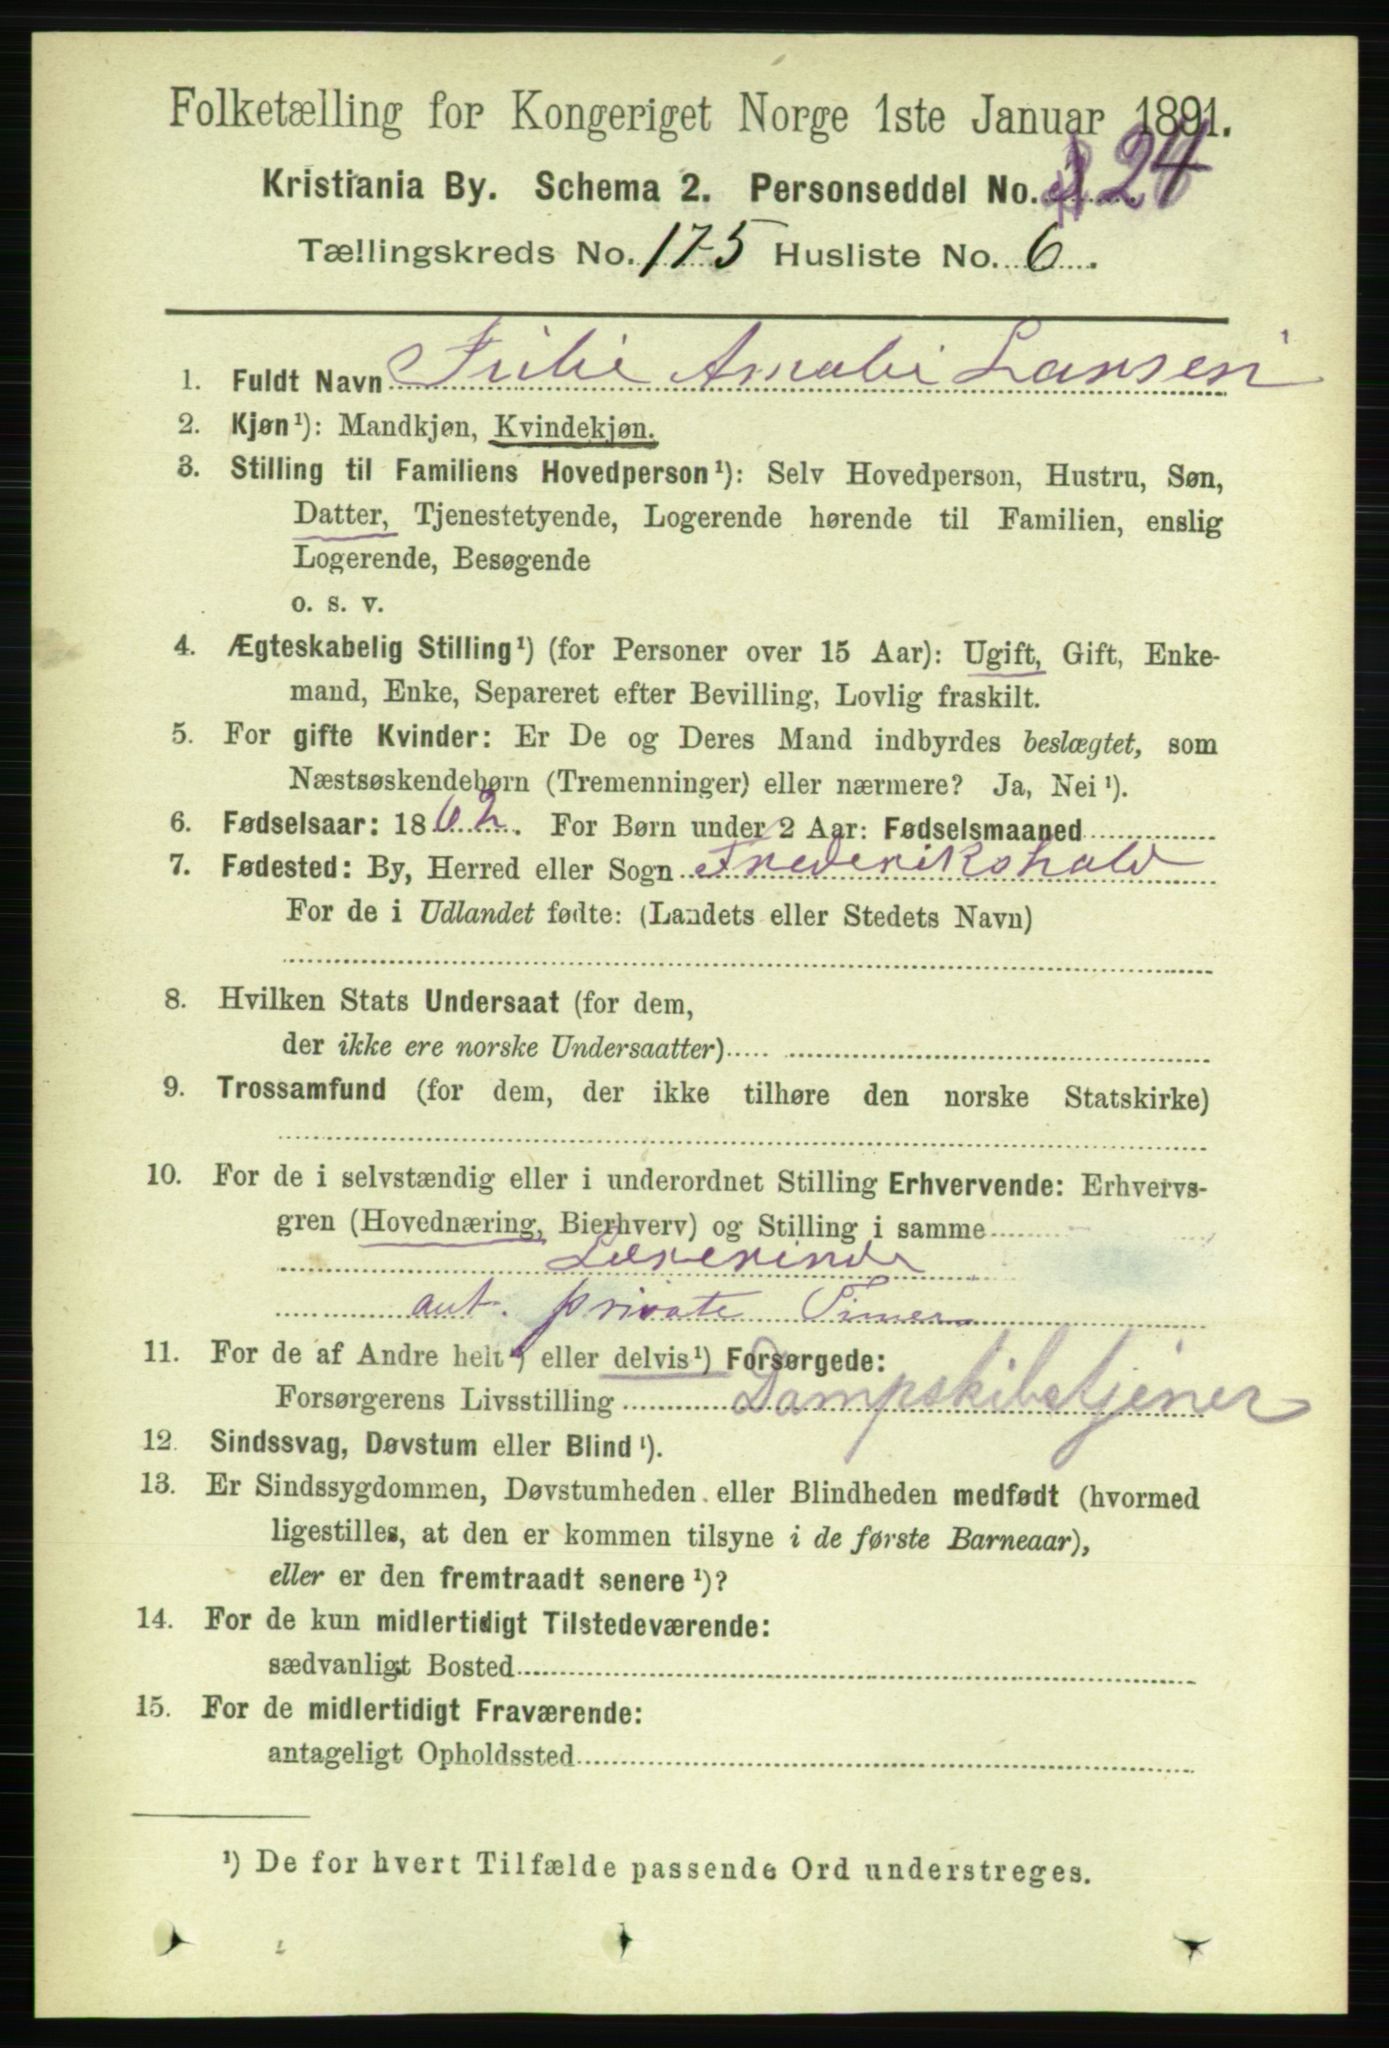 Folketælling for Kongeriget Norge 1ste Januar 1891.
Kristiania By. Schema 2. Personseddel No. 24
Tællingskreds No. 175 Husliste No. 6.
1. Fuldt Navn Julie Amalie Larsen
2. Kjøn¹): Mandkjøn, Kvindekjøn.
3. Stilling til Familiens Hovedperson¹): Selv Hovedperson, Hustru, Søn,
Datter, Tjenestetyende, Logerende hørende til Familien, enslig
Logerende, Besøgende
o. s. v.
4. Ægteskabelig Stilling¹) (for Personer over 15 Aar): Ugift, Gift, Enke-
mand, Enke, Separeret efter Bevilling, Lovlig fraskilt.
5. For gifte Kvinder: Er De og Deres Mand indbyrdes beslægtet, som
Næstsøskendebørn (Tremenninger) eller nærmere? Ja, Nei¹).
6. Fødselsaar: 1862. For Børn under 2 Aar: Fødselsmaaned
7. Fødested: By, Herred eller Sogn Frederikshald
For de i Udlandet fødte: (Landets eller Stedets Navn)
8. Hvilken Stats Undersaat (for dem,
der ikke ere norske Undersaatter)
9. Trossamfund (for dem, der ikke tilhøre den norske Statskirke)
10. For de i selvstændig eller i underordnet Stilling Erhvervende: Erhvervs-
gren (Hovednæring, Bierhverv) og Stilling i samme
Lærerinde
ant. private Timer
11. For de af Andre helt¹) eller delvis¹) Forsørgede:
Forsørgerens Livsstilling Dampskibstjener
12. Sindssvag, Døvstum eller Blind¹).
13. Er Sindssygdommen, Døvstumheden eller Blindheden medfødt (hvormed
ligestilles, at den er kommen tilsyne i de første Barneaar),
eller er den fremtraadt senere¹)?
14. For de kun midlertidigt Tilstedeværende:
sædvanligt Bosted
15. For de midlertidigt Fraværende:
antageligt Opholdssted
¹) De for hvert Tilfælde passende Ord understreges.